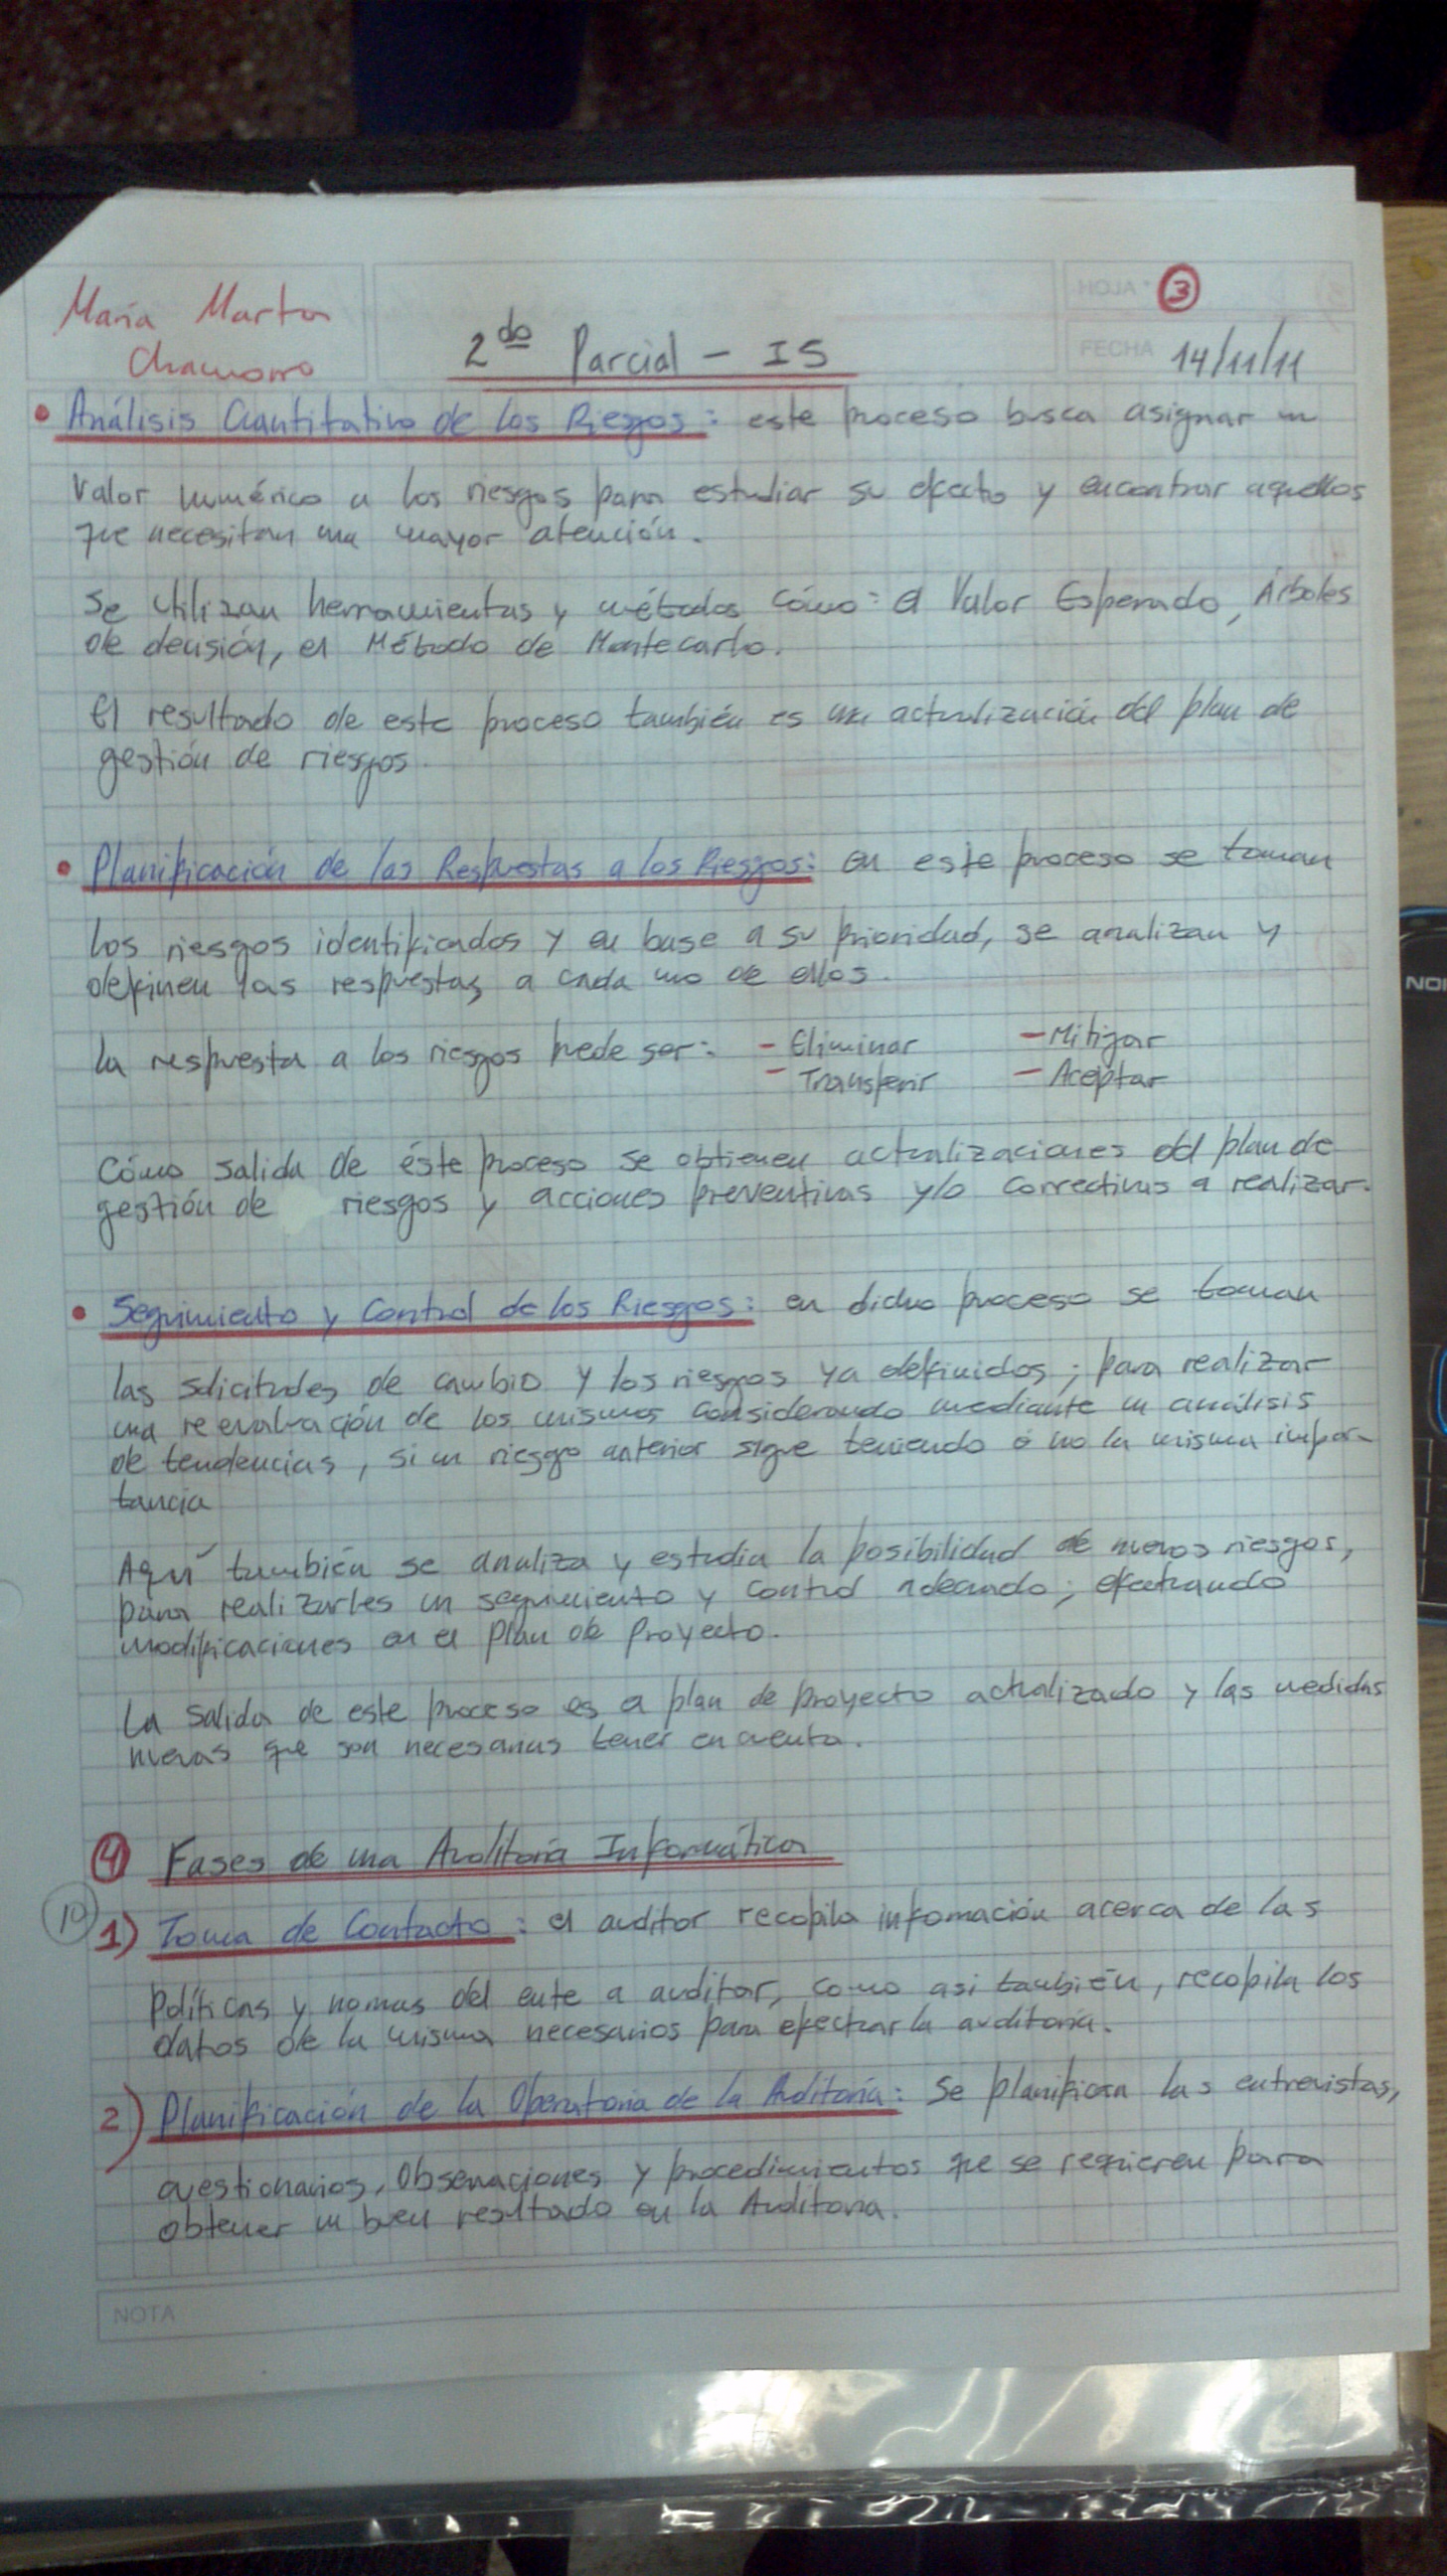 HOJA 3
María Marta
Chamorro
2do Parcial - IS
FECHA 14/11/11
• Análisis Cuantitativo de los Riesgos: este proceso busca asignar un
valor numérico a los riesgos para estudiar su efecto y encontrar aquellos
que necesitan una mayor atención.
Se utilizan herramientas y métodos cómo: el Valor Esperado, Árboles
de decisión, el Método de Montecarlo.
El resultado de este proceso también es una actualización del plan de
gestión de riesgos.
• Planificación de las Respuestas a los Riesgos: en este proceso se toman
los riesgos identificados y en base a su prioridad, se analizan y
definen las respuestas a cada uno de ellos.
la respuesta a los riesgos puede ser: - Eliminar - Mitigar
- Transferir - Aceptar
Cómo salida de éste proceso se obtienen actualizaciones del plan de
gestión de riesgos y acciones preventivas y/o correctivas a realizar.
• Seguimiento y Control de los Riesgos: en dicho proceso se toman
las solicitudes de cambio y los riesgos ya definidos; para realizar
una reevaluación de los mismos considerando mediante un análisis
de tendencias, si un riesgo anterior sigue teniendo ó no la misma impor-
tancia
Aquí también se analiza y estudia la posibilidad de nuevos riesgos,
para realizarles un seguimiento y control adecuado; efectuando
modificaciones en el Plan de Proyecto.
La salida de este proceso es el plan de proyecto actualizado y las medidas
nuevas que son necesarias tener en cuenta.
4 Fases de una Auditoría Informática
10
1) Toma de Contacto: el auditor recopila infomación acerca de las
Políticas y normas del ente a auditar, como asi también, recopila los
datos de la misma necesarios para efectuar la auditoría.
2) Planificación de la Operatoria de la Auditoría: Se planifican las entrevistas,
cuestionarios, Observaciones y procedimientos que se requieren para
obtener un buen resultado en la Auditoría.
NOTA
NO